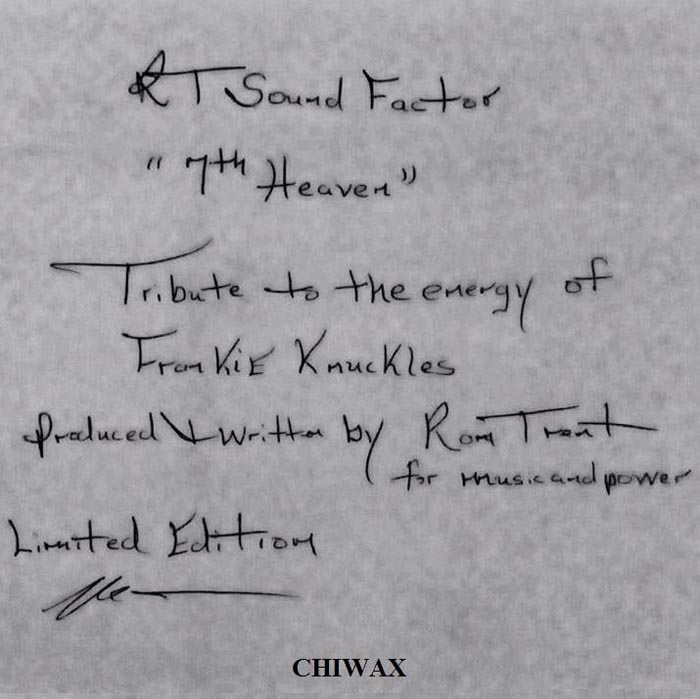 RT Sound Factor
"7th Heaven"
Tribute to the energy of
Frankie Knuckles
Produced + written by Ron Trent
for music and power
Limited Edition
CHIWAX